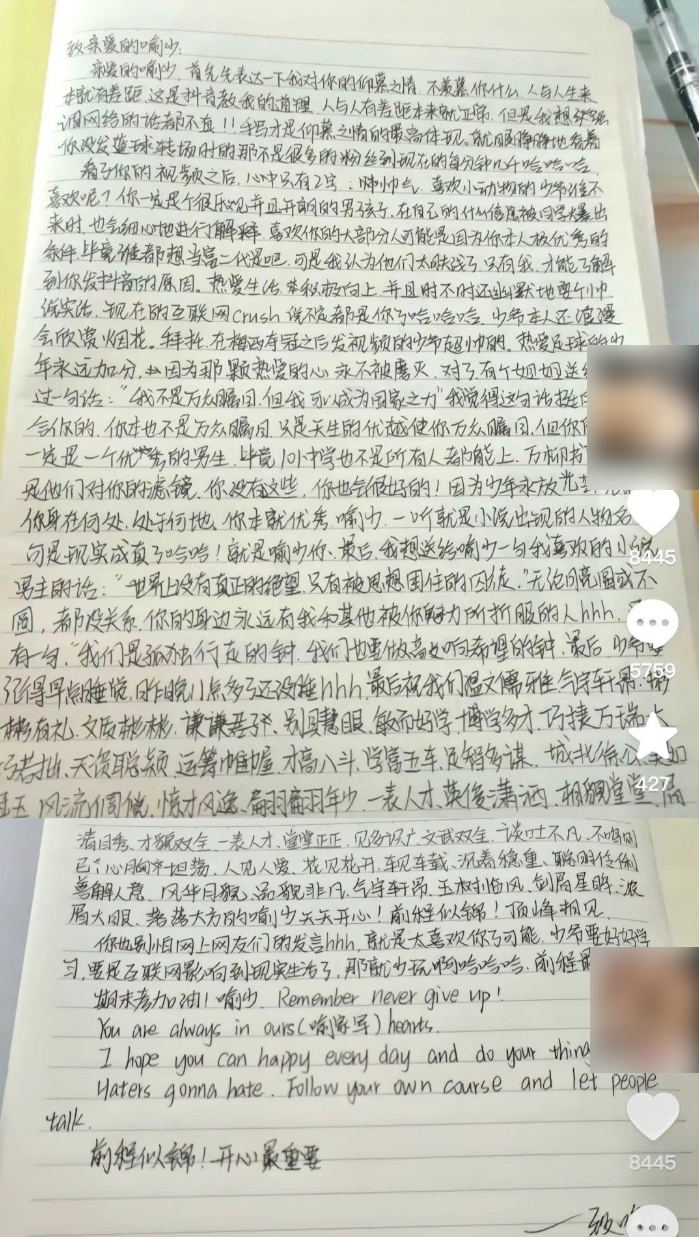 致亲爱的喻少:
亲爱的喻少,首先先表达一下我对你的仰慕之情,不羡慕你什么,人与人生来
本就有差距,这是抖音教我的道理,人与人有差距本来就正常,但是我想
网络的话都不直!!手写才是仰慕之情的最高体现,就
你没发篮球转场时的那不是很多的粉丝到现在的每分钟几千哈哈哈,
看了你的视频之后,心中只有2字:帅 帅气,喜欢小动物的少年谁不
喜欢呢?你一定是个很乐观并且开朗的男孩子,在自己的什么信息被同学爆出
来时,也会细心地进行了解释,喜欢你的大部分人可能是因为你本人极优秀的
条件,毕竟谁都想当富二代是吧,可是我认为他们太肤浅了,只有我,才能了解
到你发抖音的原因。热爱生活,积极向上,并且时不时还幽默地耍个小巾
说实话,现在的互联网crush说不定都是你了哈哈哈,少爷本人还浪漫
会欣赏烟花。拜托,在梅西夺冠之后发视频的少爷超帅的。热爱足球的少
年永远加分,因为那颗热爱的心永不被磨灭,对了有个姐姐送
过一句话:“我不是万众瞩目,但我可以成为国家之力”我觉得这句话挺
合你的,你本也不是万众瞩目,只是天生的优越使你万众瞩目,但你
一定是一个优秀的男生,毕竟101中学也不是所有人都能上,万柳书
是他们对你的滤镜,你没有这些,你也会很好的!因为少年永放光芒,
你身在何处,处于何地,你本就优秀,喻少,一听就是小说出现的人物名
句是现实成真了哈哈!就是喻少你、最后,我想送给喻少一句我喜欢的小说
男主的话:“世界上没有真正的绝望,只有被思想困住的囚徒,”无论月亮圆或不
圆,都没关系,你的身边永远有我和其他被你魅力所折服的人hhh,
有一句,“我们是孤独行走的钟,我们也要做高处响希望的钟,最后,少爷
了记得早点睡觉,昨晚11点多了还没睡hhh,最后祝我们温文儒雅,气宇轩昂、彬
彬有礼,文质彬彬,谦谦君子,别具慧眼,敏而好学,博学多才,巧捷万端,大
巧若拙、天资聪颖,运筹帷幄,才高八斗,学富五车,足智多谋,城北徐公,美如
冠玉,风流倜傥,惊才风逸,翩翩年少,一表人才,英俊潇洒,相貌堂堂,眉
清目秀、才貌双全,一表人才,堂堂正正,见多识广,文武双全,谈吐不凡,不鸣则
已,心胸坦荡,人见人爱、花见花开,车见车载、沉着稳重、聪明伶俐
善解人意,风华月貌,品貌非凡,气宇轩昂,玉树临风,剑眉星眸,浓
眉大眼、落落大方的喻少天天开心!前程似锦!顶峰相见,
你也别怕网上网友们的发言hhh,就是太喜欢你了可能,少爷要好好学
习,要是互联网影响到现实生活了,那就少玩啊哈哈哈,前程
期末考加油!喻少,Remember never give up!
You are always in ours(喻家军)hearts.
I hope you can happy every day and do your thing
Haters gonna hate. Follow your own course and let people
talk.
前程似锦!开心最重要
——致
8445
5759
427
8445